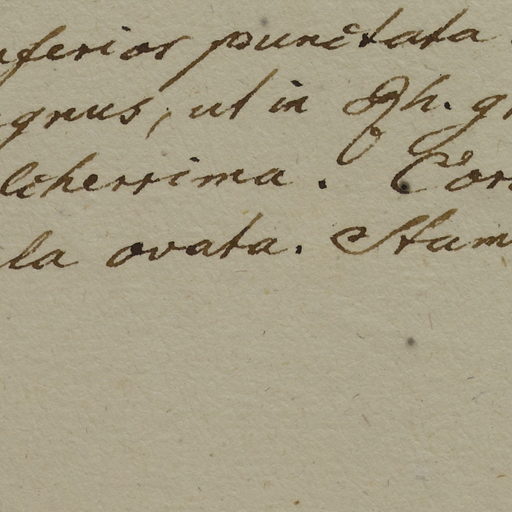 nferior punctata
gnus, ut in Ph. gr
lcherrima. Cor
la ovata. Stam